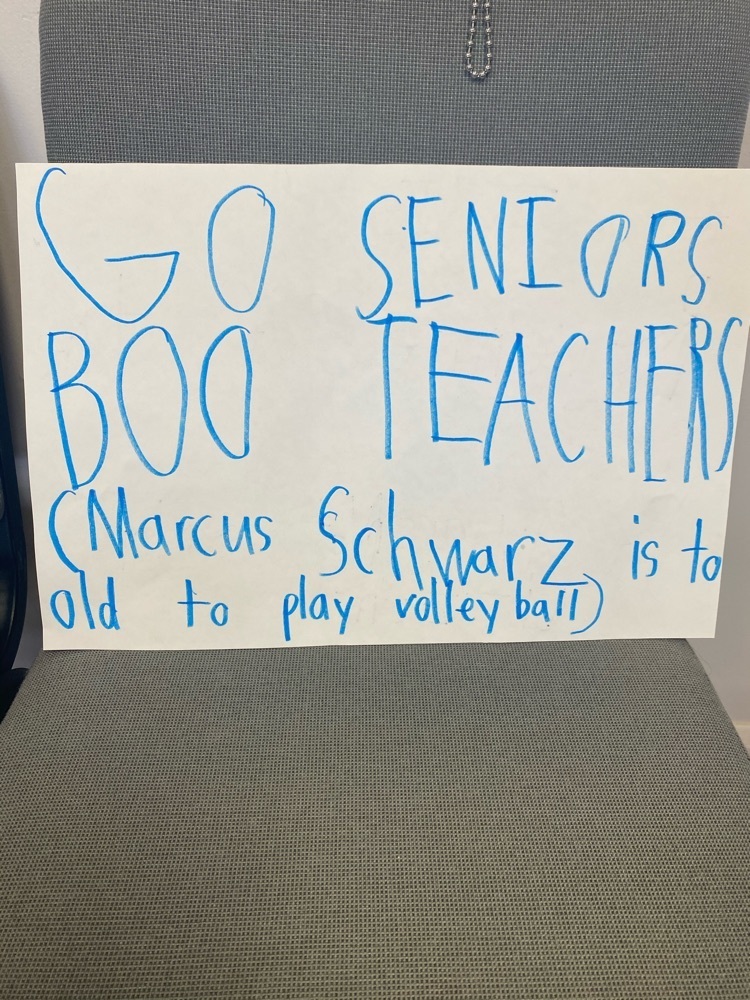 GO SENIORS
BOO TEACHERS
(Marcus Schwarz is to
old to play volleyball)